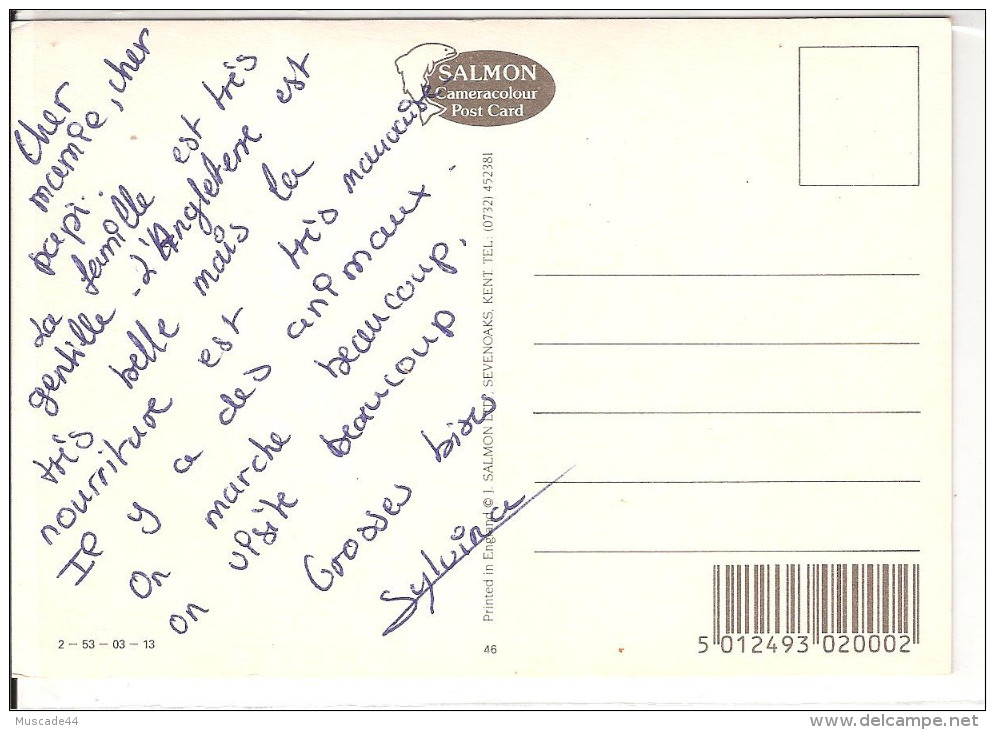 Cher
mamie, cher
papi.
La famille est très
gentille - L'Angleterre est
très belle mais la
nourriture est très mauvaise.
Il y a des animaux -
On marche beaucoup.
on visite beaucoup
beaucoup,
Grosses bises
Sylvina
SALMON
Cameracolour
Post Card
Printed in England © J. SALMON LTD., SEVENOAKS, KENT. TEL. (0732) 452381
2 – 53 – 03 – 13
46
5 012493 020002
Muscade44
www.delcampe.net